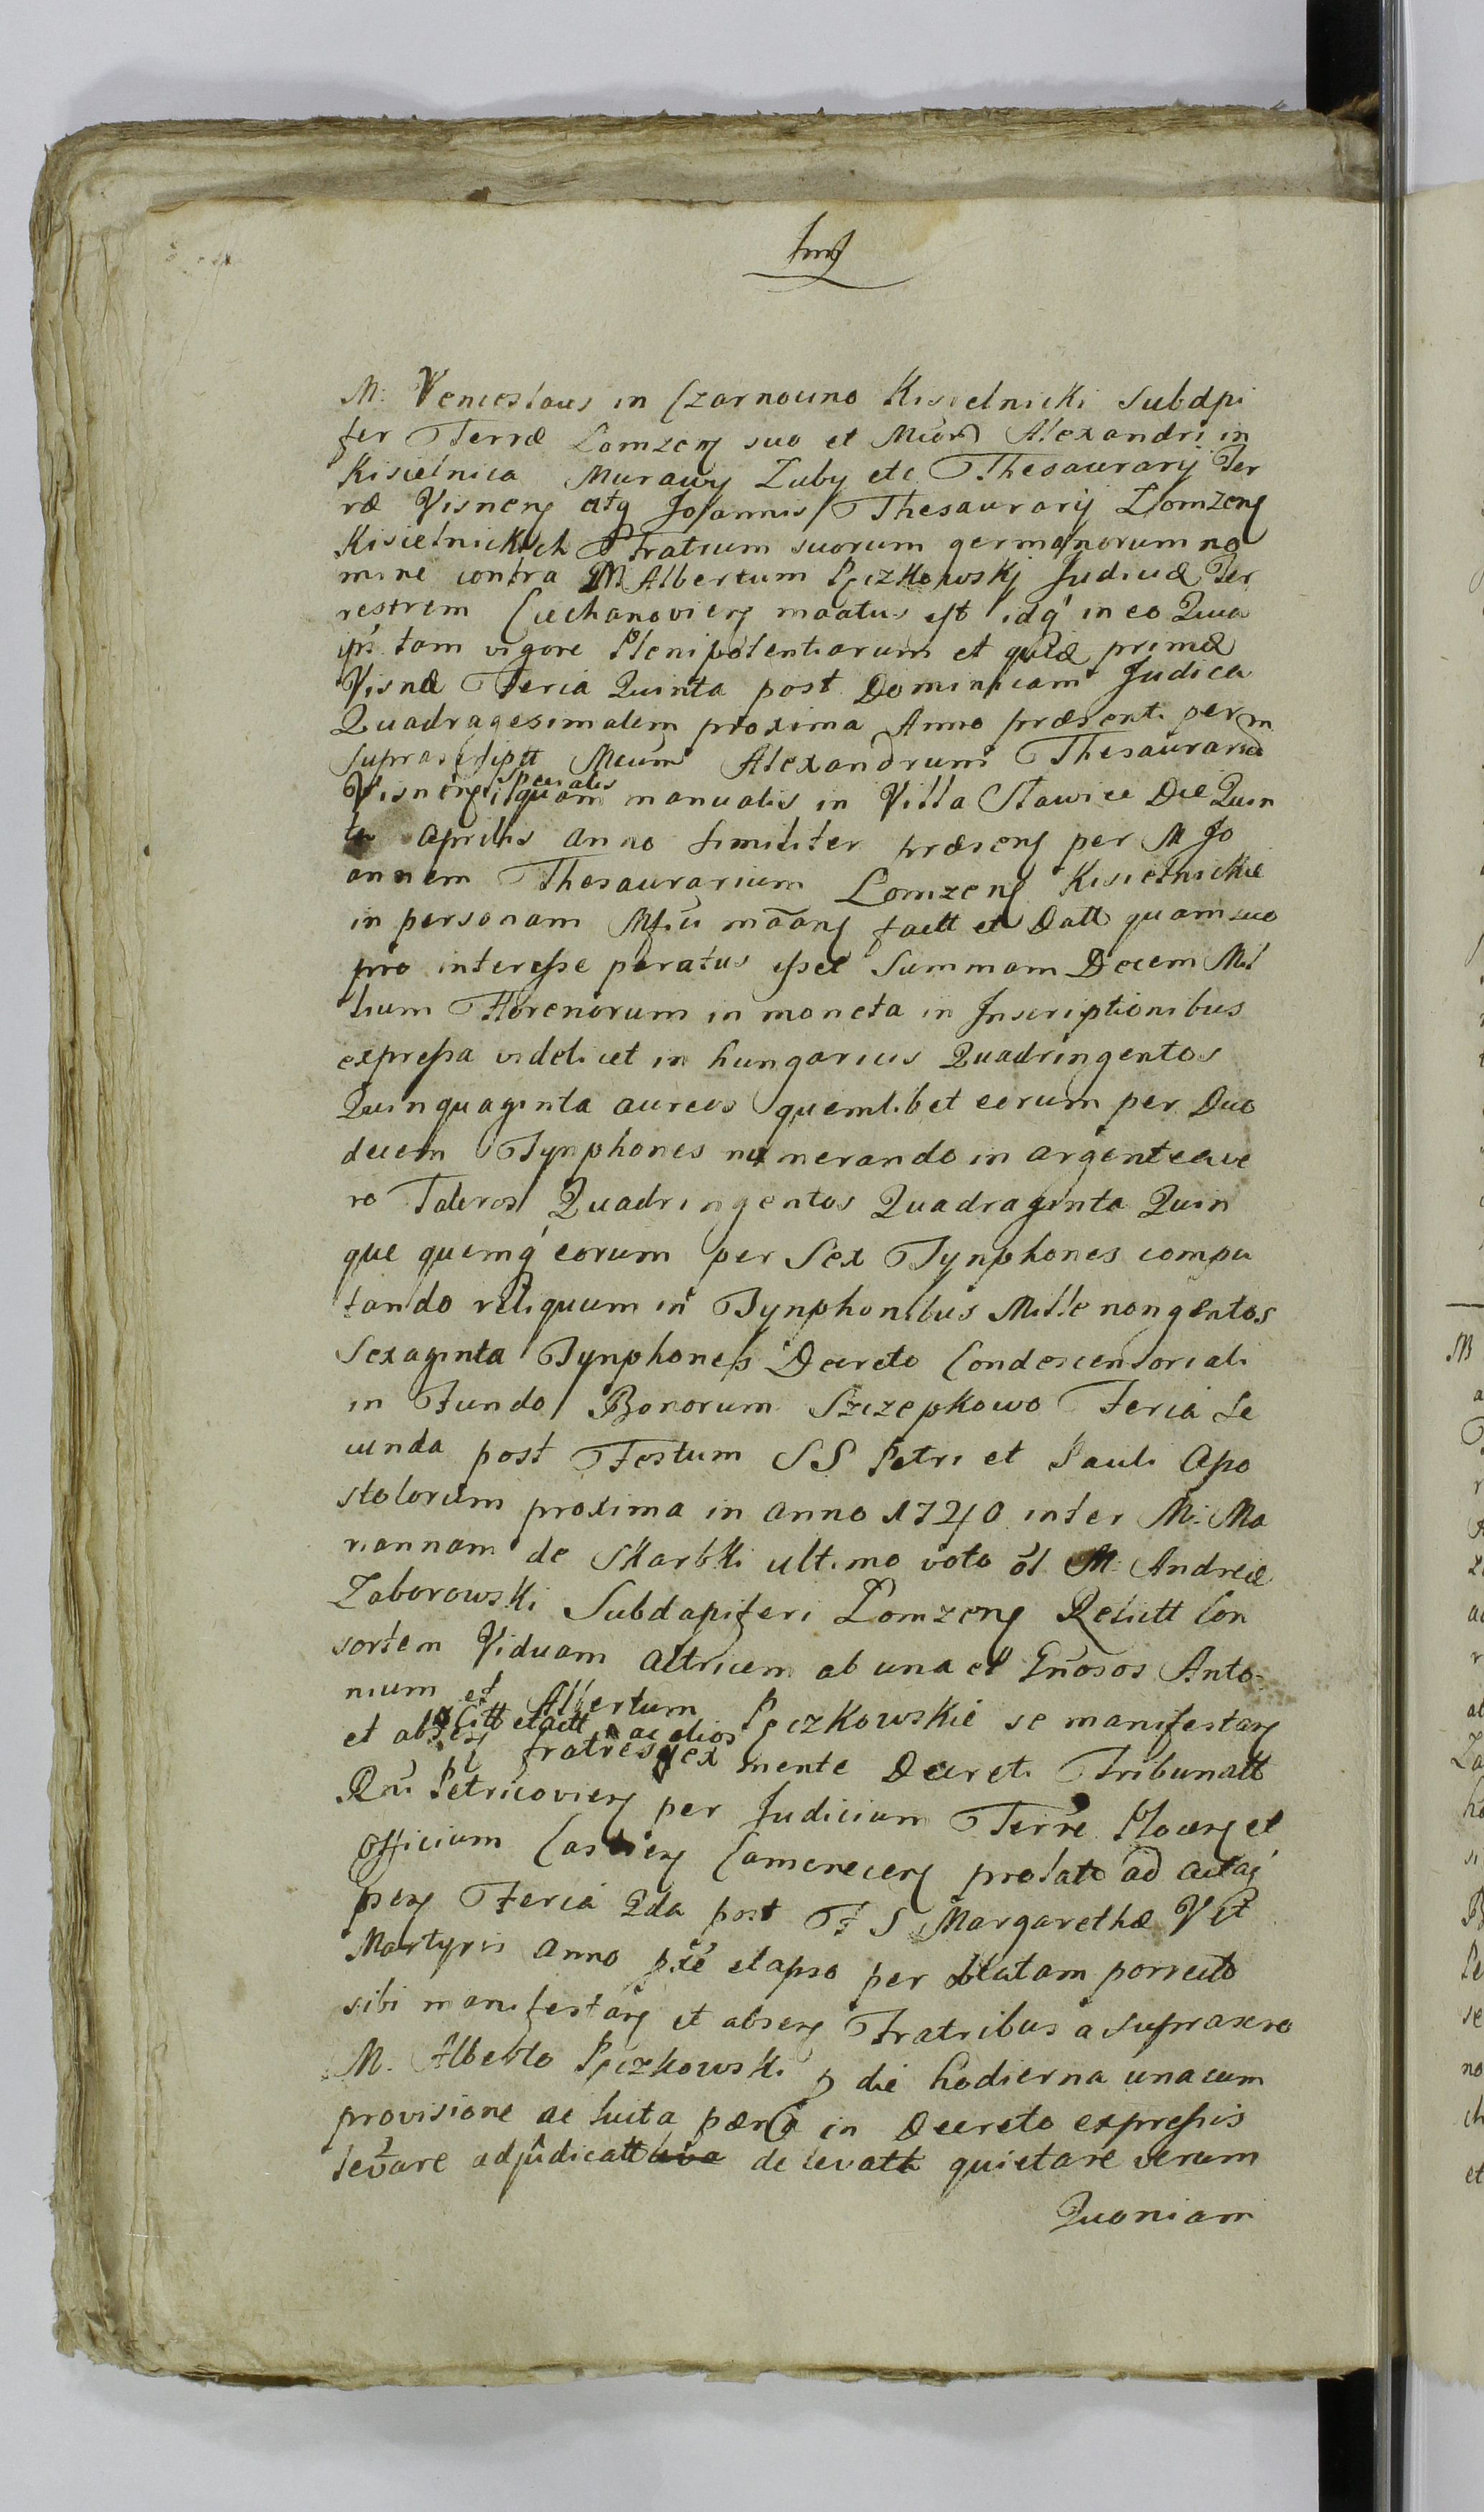 M: Venceslaus in Czarnowno Kisielnicki Subdpi
fer Terræ Lomzen suo et Mcor Alexandri in
Kisielnica Murawy Zuby etc Thesaurarij Ter
ræ Visnen atq Joannis Thesaurarij Lomzen
Kisielnickich Fratrum suorum germanorum no
mine contra M Albertum Pęczkowskj Judicem Ter
restrem Ciechanovien maatus est idq in eo Quia
ipse tam vigore Plenipotentiarum et quidē primæ
Visnæ Feria Quinta post Dominicam Judica
Quadragesimalem proxima Anno præsenti per m
suprascriptt Mcum Alexandrum Thesaurariu
Visnen quam specialis manualis in Villa Stawice Die Quin
ta Aprilis anno similiter præsen per M Jo
annem Thesaurarium Lomzen Kisielnickie
in personam Mfici māan factt et Datt quam suo
pro interesse paratus esset Summam Decem Mil
lium Florenorum in moneta in Inscriptionibus
expressa videlicet in hungaricis Quadringentos
Quinquaginta aureos quemlibet eorum per Duo
decem Tynphones numerando in argentea ve
ro Taleros Quadringentos Quadraginta Quin
que quemq eorum per Sex Tynphones compu
tando reliquum in Tynphonibus Mille nongentos
Sexaginta Tynphones Decreto Condescensoriali
in Fundo Bonorum Szczepkowo Feria Se
cunda post Festum SS Petri et Pauli Apo
stolorum proxima in anno 1740 inter M: Ma
riannam de Skarbki ultimo voto ol M: Andreæ
Zaborowski Subdapiferi Lomzen Relictt Con
sortem Viduam Actricem ab una et Gnosos Anto-
nium et Albertum Pęczkowskie se manifestan
et absen Citt et actt ac alios fratres ex mente Decreti Tribunatt
Rni Petricovien per Judicium Terre Plocen et
Officium Castren Camenecen prolato ad acta
psen Feria 2da post F S Margarethæ V et
Martyris anno pxe elapso per oblatam porrecto
sibi manifestan et absen Fratribus a supraxpro
M. Alberto Pęczkowski p die hodierna unacum
provisione ac luita pæna in Decreto expressis
levare adjudicatt de levatt quietare verum
Quoniam